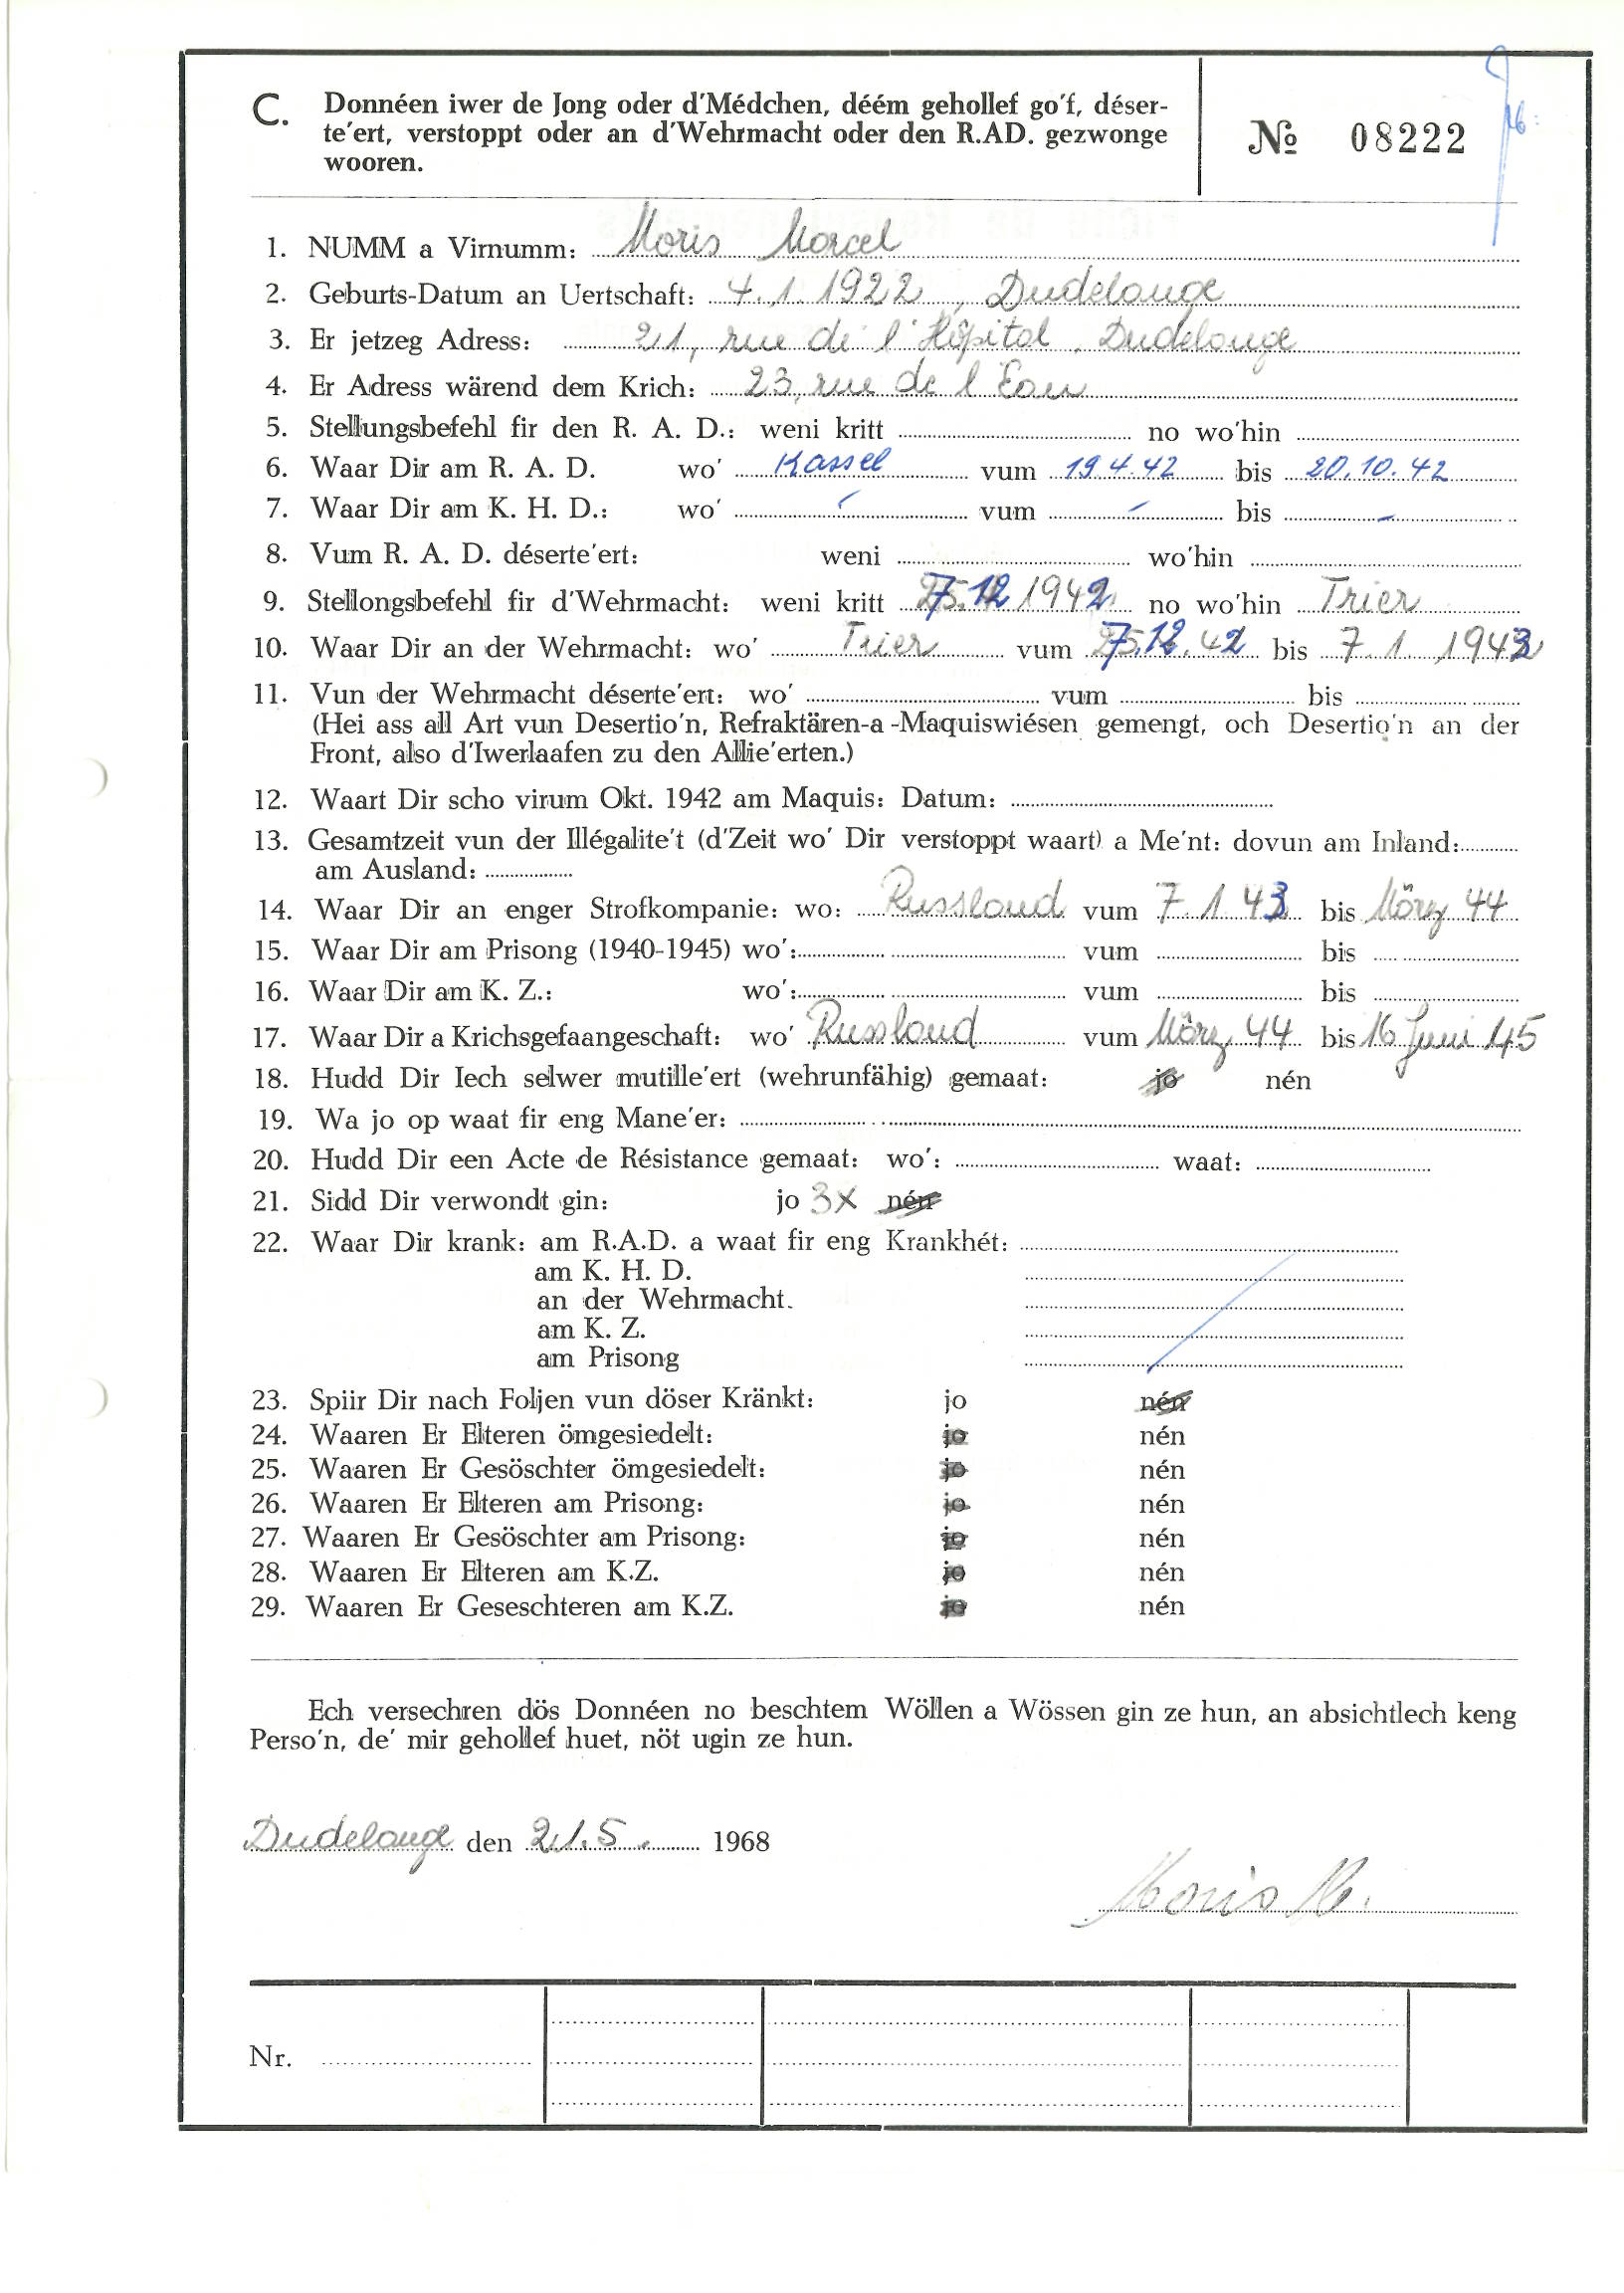 C. Donnéen iwer de Jong oder d'Médchen, déém gehollef go'f, déser-
te'ert, verstoppt oder an d'Wehrmacht oder den R.AD. gezwonge
wooren.
№ 08222
1. NUMM a Virnumm: Moris Marcel
2. Geburts-Datum an Uertschaft: 4.1.1922, Dudelange
3. Er jetzeg Adress: 21, rue de l'Hôpital, Dudelange
4. Er Adress wärend dem Krich: 23, rue de l'Eau
5. Stellungsbefehl fir den R. A. D.: weni kritt no wo'hin
6. Waar Dir am R. A. D. wo' Kassel vum 19.4.42 bis 20.10.42
7. Waar Dir am K. H. D.: wo' - vum - bis -
8. Vum R. A. D. déserte'ert: weni wo'hin
9. Stellongsbefehl fir d'Wehrmacht: weni kritt 7.12 1942 no wo'hin Trier
10. Waar Dir an der Wehrmacht: wo' Trier vum 7.12.42 bis 7.1.1943
11. Vun der Wehrmacht déserte'ert: wo' vum bis
(Hei ass all Art vun Desertio'n, Refraktären-a -Maquiswiésen gemengt, och Desertio'n an der
Front, also d'Iwerlaafen zu den Allie'erten.)
12. Waart Dir scho virum Okt. 1942 am Maquis: Datum:
13. Gesamtzeit vun der Illégalite't (d'Zeit wo' Dir verstoppt waart) a Me'nt: dovun am Inland:
am Ausland:
14. Waar Dir an enger Strofkompanie: wo: Russland vum 7.1.43 bis März 44
15. Waar Dir am Prisong (1940-1945) wo': vum bis
16. Waar Dir am K. Z.: wo': vum bis
17. Waar Dir a Krichsgefaangeschaft: wo' Russland vum März 44 bis 16 Juni 45
18. Hudd Dir Iech selwer mutille'ert (wehrunfähig) gemaat: jo nén
19. Wa jo op waat fir eng Mane'er:
20. Hudd Dir een Acte de Résistance gemaat: wo': waat:
21. Sidd Dir verwondt gin: jo 3x nén
22. Waar Dir krank: am R.A.D. a waat fir eng Krankhét:
am K. H. D.
an der Wehrmacht.
am K. Z.
am Prisong
23. Spiir Dir nach Foljen vun döser Kränkt: jo nén
24. Waaren Er Elteren ömgesiedelt: jo nén
25. Waaren Er Gesöschter ömgesiedelt: jo nén
26. Waaren Er Elteren am Prisong: jo nén
27. Waaren Er Gesöschter am Prisong: jo nén
28. Waaren Er Elteren am K.Z. jo nén
29. Waaren Er Geseschteren am K.Z. jo nén
Ech versechren dös Donnéen no beschtem Wöllen a Wössen gin ze hun, an absichtlech keng
Perso'n, de' mir gehollef huet, nöt ugin ze hun.
Dudelange den 21.5. 1968
Moris M.
Nr.